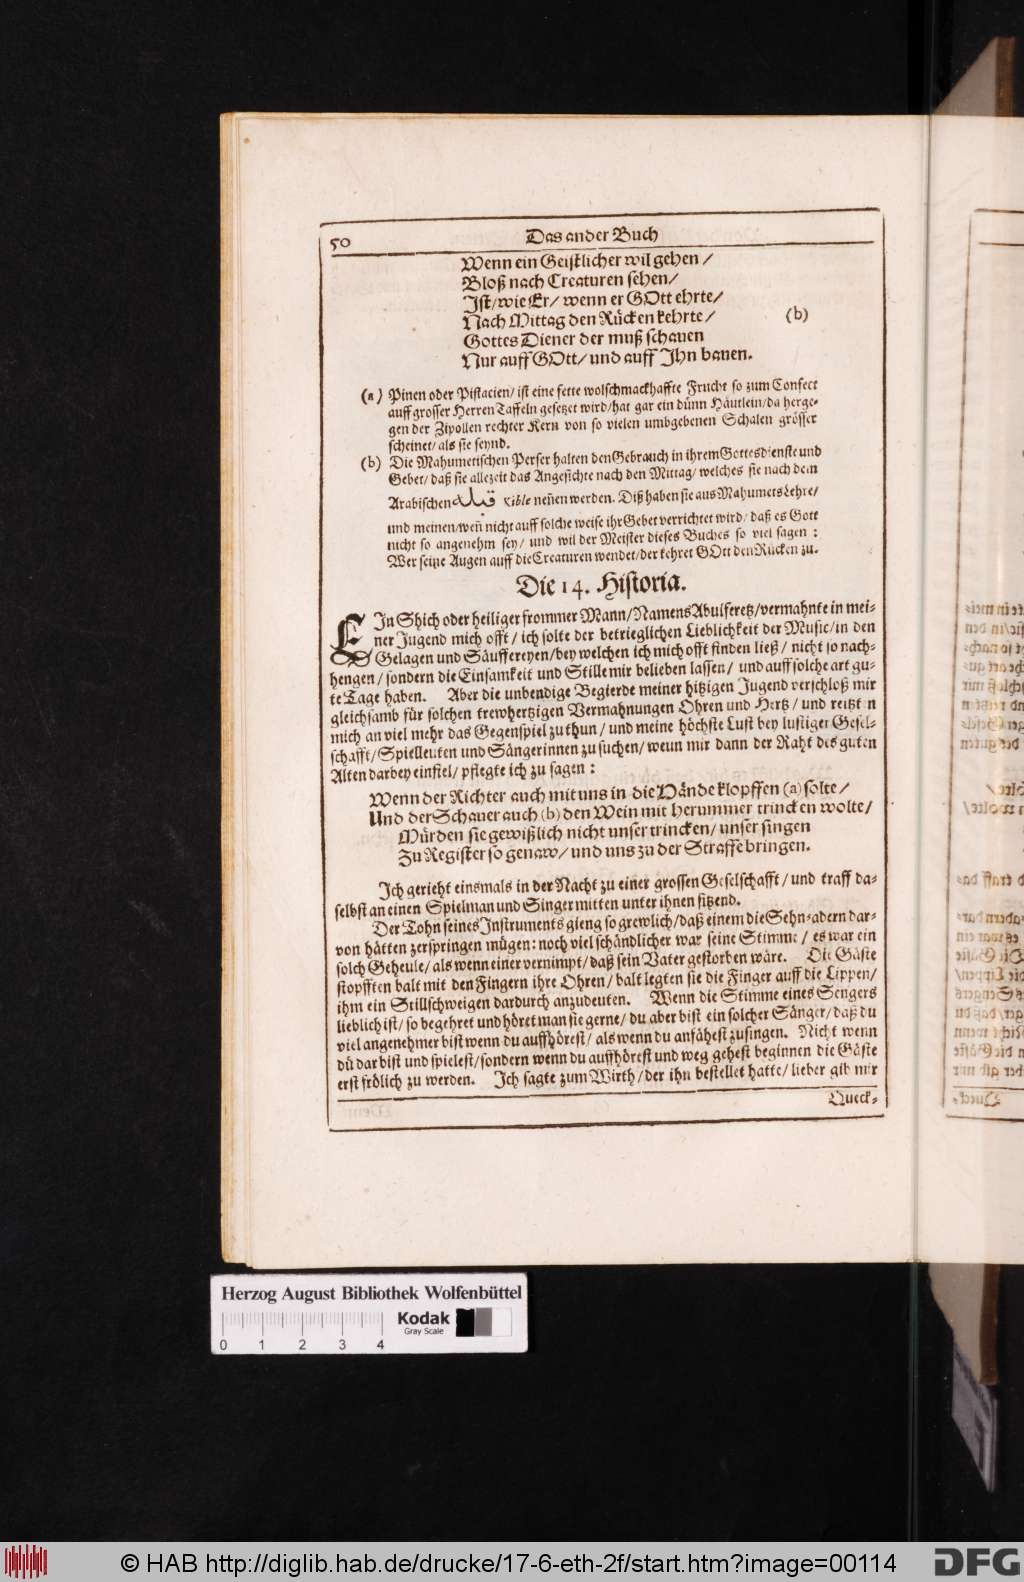 50 Das ander Buch
Wenn ein Geistlicher wil gehen /
Bloß nach Creaturen sehen/
Ist/wie Er/ wenn er GOtt ehrte/
Nach Mittag den Rücken kehrte/ (b)
Gottes Diener der muß schauen
Nur auff GOtt/ und auff Ihn bauen.
(a) Pinen oder Pistacien/ ist eine fette wolschmackhaffte Frucht so zum Confect
auff grosser Herren Taffeln gesetzet wird/hat gar ein dünn Häutlein/da herge-
gen der Zipollen rechter Kern von so vielen umbgebenen Schalen grösser
scheinet/als sie seynd.
(b) Die Mahumetischen Perser halten den Gebrauch in ihrem Gottesdienste und
Gebet/ daß sie allezeit das Angesichte nach den Mittag/ welches sie nach dem
Arabischen قبله Kible neñen werden. Diß haben sie aus Mahumets Lehre/
und meinen/weñ nicht auff solche weise ihr Gebet verrichtet wird/ daß es Gott
nicht so angenehm sey/ und wil der Meister dieses Buches so viel sagen:
Wer seine Augen auff die Creaturen wendet/der kehret GOtt den Rücken zu.
Die 14. Historia.
EIn Shich oder heiliger frommer Mann/Namens Abulferetz/vermahnte in mei-
ner Jugend mich offt/ ich solte der betrieglichen Lieblichkeit der Music/in den
Gelagen und Säuffereyen/bey welchen ich mich offt finden ließ/ nicht so nach-
hengen/sondern die Einsamkeit und Stille mir belieben lassen/ und auff solche art gu-
te Tage haben. Aber die unbendige Begierde meiner hitzigen Jugend verschloß mir
gleichsamb für solchen trewhertzigen Vermahnungen Ohren und Hertz/ und reitzten
mich an viel mehr das Gegenspiel zu thun/ und meine höchste Lust bey lustiger Gesel-
schafft/Spielleuten und Sängerinnen zu suchen/wenn mir dann der Raht des guten
Alten darbey einfiel/pflegte ich zu sagen:
Wenn der Richter auch mit uns in die Hände klopffen (a) solte/
Und der Schauer auch (b) den Wein mit herummer trincken wolte/
Würden sie gewißlich nicht unser trincken/ unser singen
Zu Register so genaw/ und uns zu der Straffe bringen.
Ich gerieht einsmals in der Nacht zu einer grossen Geselschafft/ und traff da-
selbst an einen Spielman und Singer mitten unter ihnen sitzend.
Der Tohn seines Instruments gieng so grewlich/daß einem die Sehn-adern dar-
von hätten zerspringen mügen: noch viel schändlicher war seine Stimme/ es war ein
solch Geheule/als wenn einer vernimpt/daß sein Vater gestorben wäre. Die Gäste
stopfften balt mit den Fingern ihre Ohren/ balt legten sie die Finger auff die Lippen/
ihm ein Stillschweigen dardurch anzudeuten. Wenn die Stimme eines Sengers
lieblich ist/ so begehret und höret man sie gerne/ du aber bist ein solcher Sänger/daß du
viel angenehmer bist wenn du auffhörest/ als wenn du anfähest zu singen. Nicht wenn
dü dar bist und spielest/sondern wenn du auffhörest und weg gehest beginnen die Gäste
erst frölich zu werden. Ich sagte zum Wirth/der ihn bestellet hatte/ lieber gib mir
Queck-
Herzog August Bibliothek Wolfenbüttel
Kodak
Gray Scale
0 1 2 3 4
© HAB http://diglib.hab.de/drucke/17-6-eth-2f/start.htm?image=00114
DFG